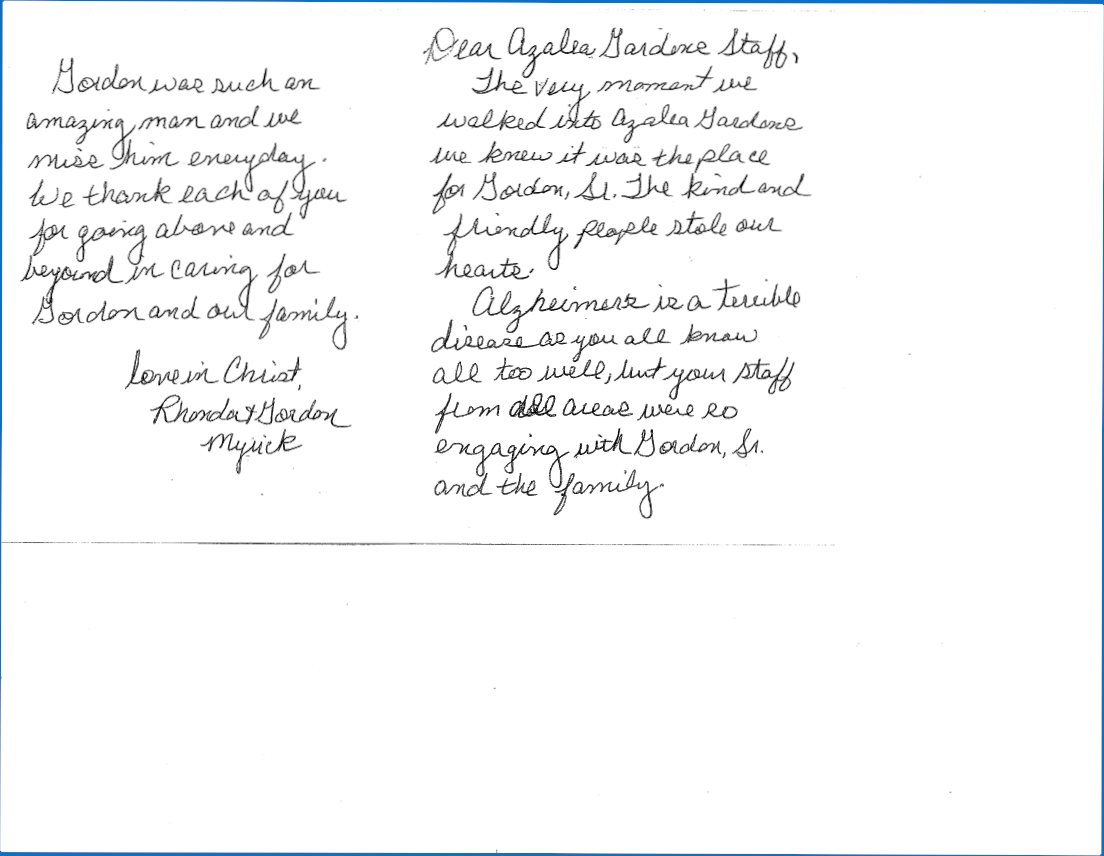 Dear Azalea Gardens Staff,
The very moment we
walked into Azalea Gardens
we knew it was the place
for Gordon, Sr. The kind and
friendly people stole our
hearts.
Alzheimers is a terrible
disease as you all know
all too well, but your staff
from all areas were so
engaging with Gordon, Sr.
and the family.
Gordon was such an
amazing man and we
miss him everyday.
We thank each of you
for going above and
beyound in caring for
Gordon and our family.
Love in Christ,
Rhonda & Gordon
Myrick